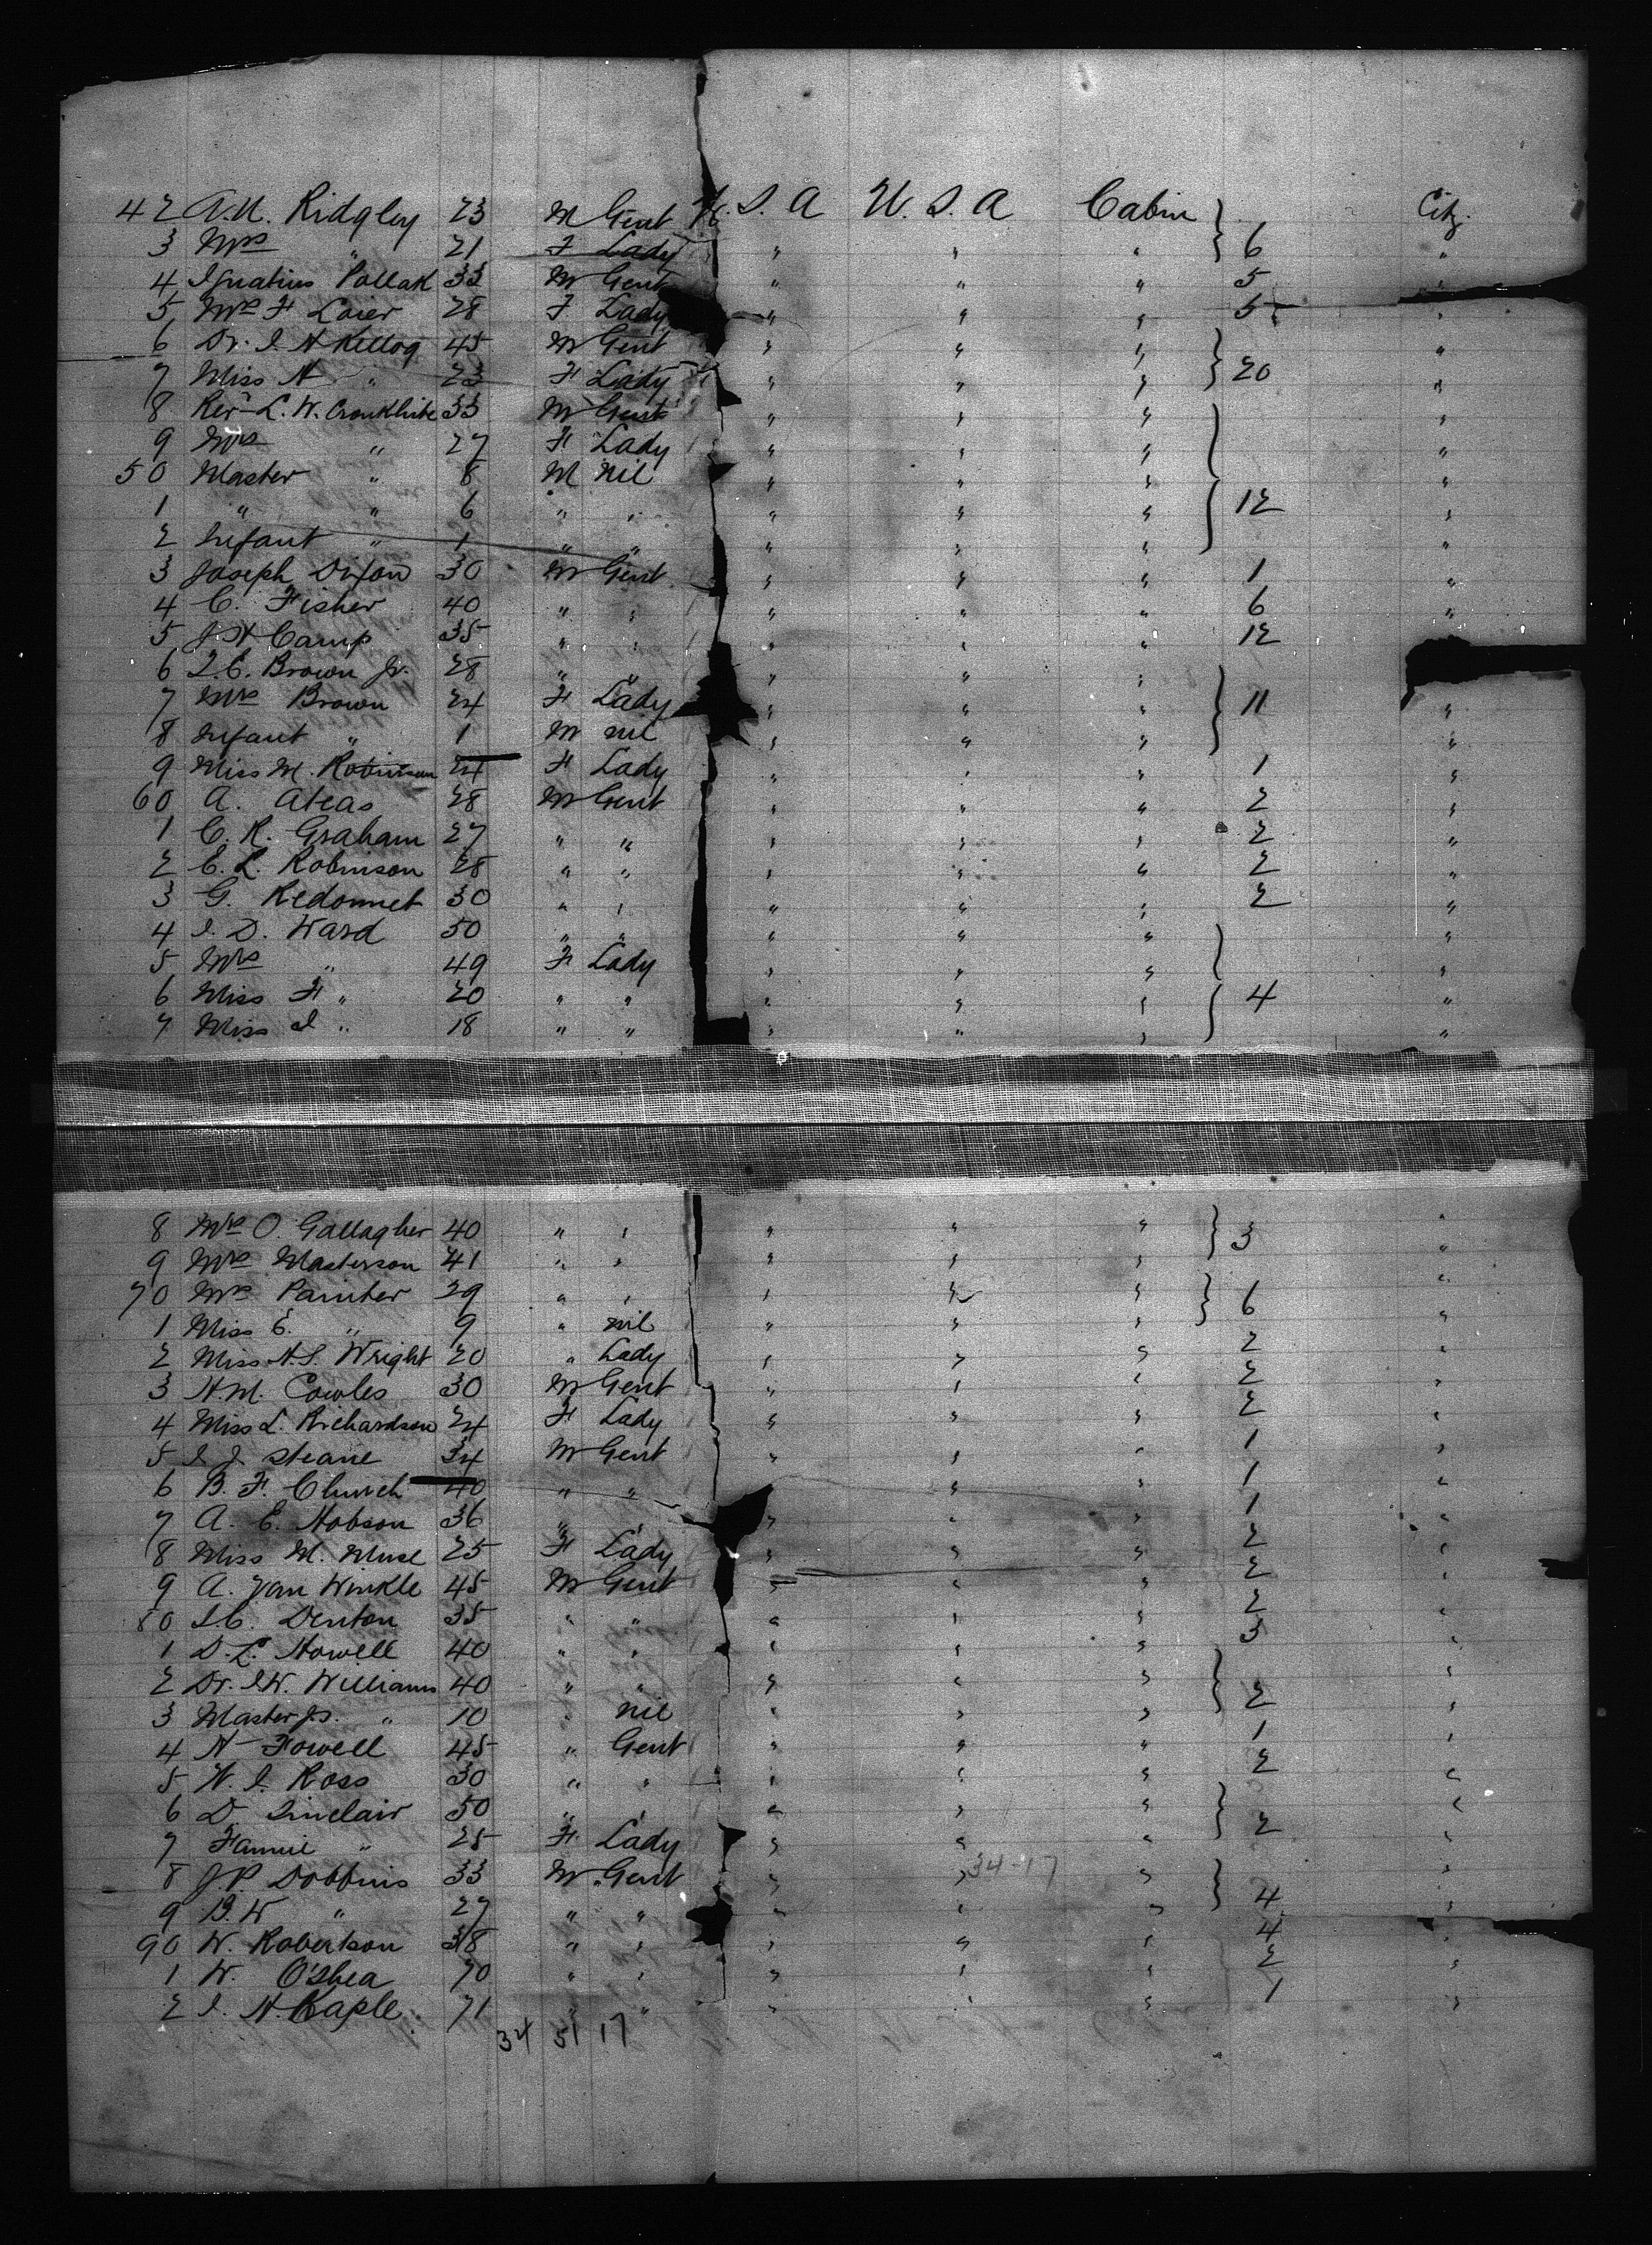 42 A.U. Ridgley 23 M Gent U.S.A U.S.A Cabin City
3 Mrs " 21 F Lady " " " 6 "
4 Ignatius Pollak 33 M Gent " " " 5 "
5 Mrs F Loier 28 F Lady " " " 5 "
6 Dr. I. H Kellog 45 M Gent " " " "
7 Miss N " 23 F Lady " " " 20 "
8 Rev L. W. Cronkhite 33 M Gent " " " "
9 Mrs " 27 F Lady " " " "
50 Master " 8 M nil " " " "
1 " " 6 " " " " " 12 "
2 Infant " 1 " " " " " "
3 Joseph Dixon 30 M Gent " " " 1 "
4 C. Fisher 40 " " " " " 6 "
5 J H Camp 35 " " " " " 12
6 T. C. Brown Jr. 28 " " " " "
7 Mrs Brown 24 F Lady " " " 11 "
8 Infant " 1 M nil " " " "
9 Miss M. Robinson 24 F Lady " " " 1 "
60 A. Ateas 28 M Gent " " " 2 "
1 C. R. Graham 27 " " " " " 2 "
2 C. L. Robinson 28 " " " " " 2 "
3 G. Redonnet 30 " " " " " 2 "
4 I. D. Ward 50 " " " " " "
5 Mrs " 49 F Lady " " " "
6 Miss F " 20 " " " " " 4 "
7 Miss I " 18 " " " " " "
8 Mrs O. Gallagher 40 " " " " " 3 "
9 Mrs Masterson 41 " " " " " "
70 Mrs Painter 29 " " " " " 6 "
1 Miss E. " 9 " nil " " " "
2 Miss A.S. Wright 20 " Lady " " " 2 "
3 H.M. Cowles 30 M Gent " " " 2 "
4 Miss L. Richardson 24 F Lady " " " 2 "
5 I J Steane 34 M Gent " " " 1 "
6 B. F. Church 40 " " " " " 1 "
7 A. E. Hobson 36 " " " " " 1 "
8 Miss M. Muse 25 F Lady " " " 2 "
9 A. Van Winkle 45 M Gent " " " 2 "
80 S.C. Denton 35 " " " " " 2 "
1 D. L. Howell 40 " " " " " 3 "
2 Dr. I.W. Williams 40 " " " " " "
3 Master Js. " 10 " nil " " " 2 "
4 H Fowell 45 " Gent " " " 1 "
5 W. I. Ross 30 " " " " " 2 "
6 D. Sinclair 50 " " " " " "
7 Fannie " 25 F Lady " " " 2 "
8 J.P. Dobbins 33 M Gent " " 34-17 " "
9 B.W " 27 " " " " " 4 "
90 W. Robertson 38 " " " " " 4
1 W. O'Shea 70 " " " " " 2 "
2 I. H. Kaple 71 " " " " " 1 "
34 51 17